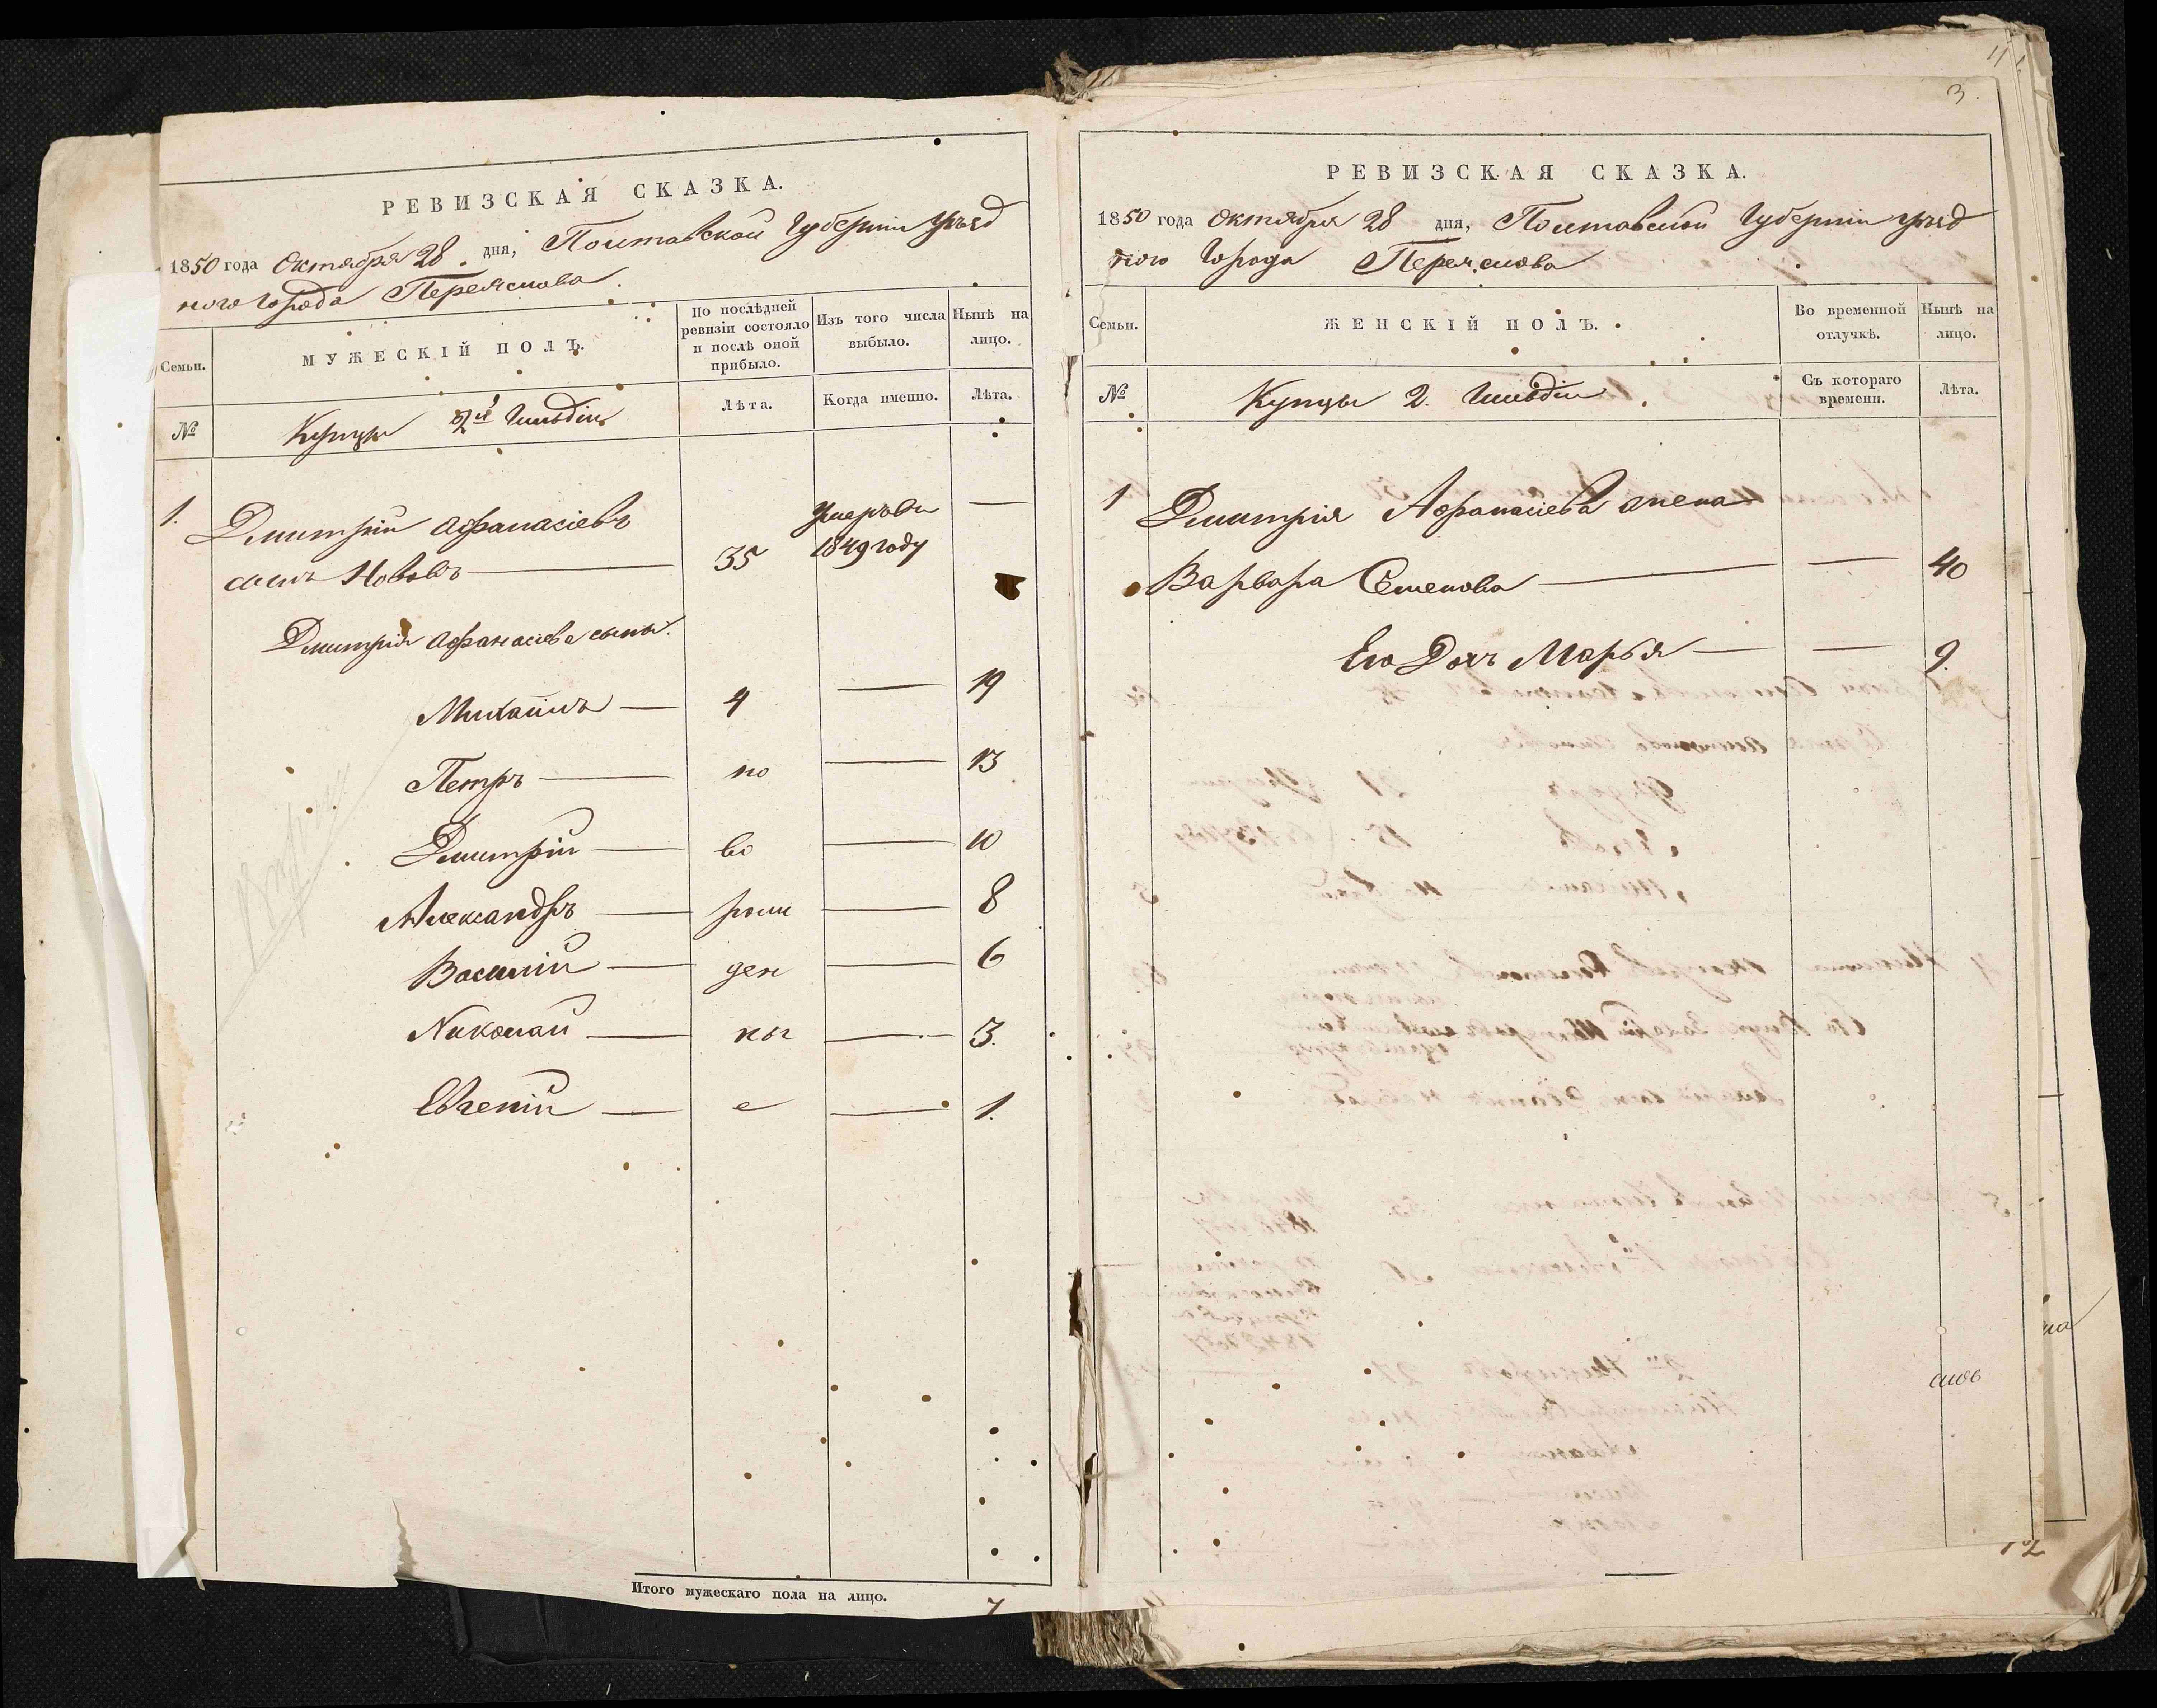 РЕВИЗСКАЯ СКАЗКА.
1850 года Октября 28. дня, Полтавской Губерніи уѣзд
ного Города Переяслова.
Семьи.
МУЖЕСКІЙ ПОЛЪ.
По послѣдней ревизіи состояло и послѣ оной прибыло.
Изъ того числа выбыло.
Нынѣ на лицо.
№
Купцы 2й Гильдіи
Лѣта.
Когда именно.
Лѣта.
1. Дмитрій Афанасіевъ
сынъ Нововъ — 35 умеръ въ 1849 году —
Дмитрія Афанасіева сыны.
Михаилъ — 4 — 19
Петръ — по — 13
Дмитрій — во — 10
Александръ — рож — 8
Василій — ден — 6
Николай — ны — 3.
Евгеній — е — 1.
Итого мужескаго пола на лицо. 7
3.
РЕВИЗСКАЯ СКАЗКА.
1850 года Октября 28 дня, Полтавской Губерніи уѣзд
ного Города Переяслова
Семьи.
ЖЕНСКІЙ ПОЛЪ.
Во временной отлучкѣ.
Нынѣ на лицо.
№
Купцы 2. Гильдіи.
Съ котораго времени.
Лѣта.
1 Дмитрія Афанасіева жена
Варвара Семенова — — 40
Его Дочь Марья — — 9.